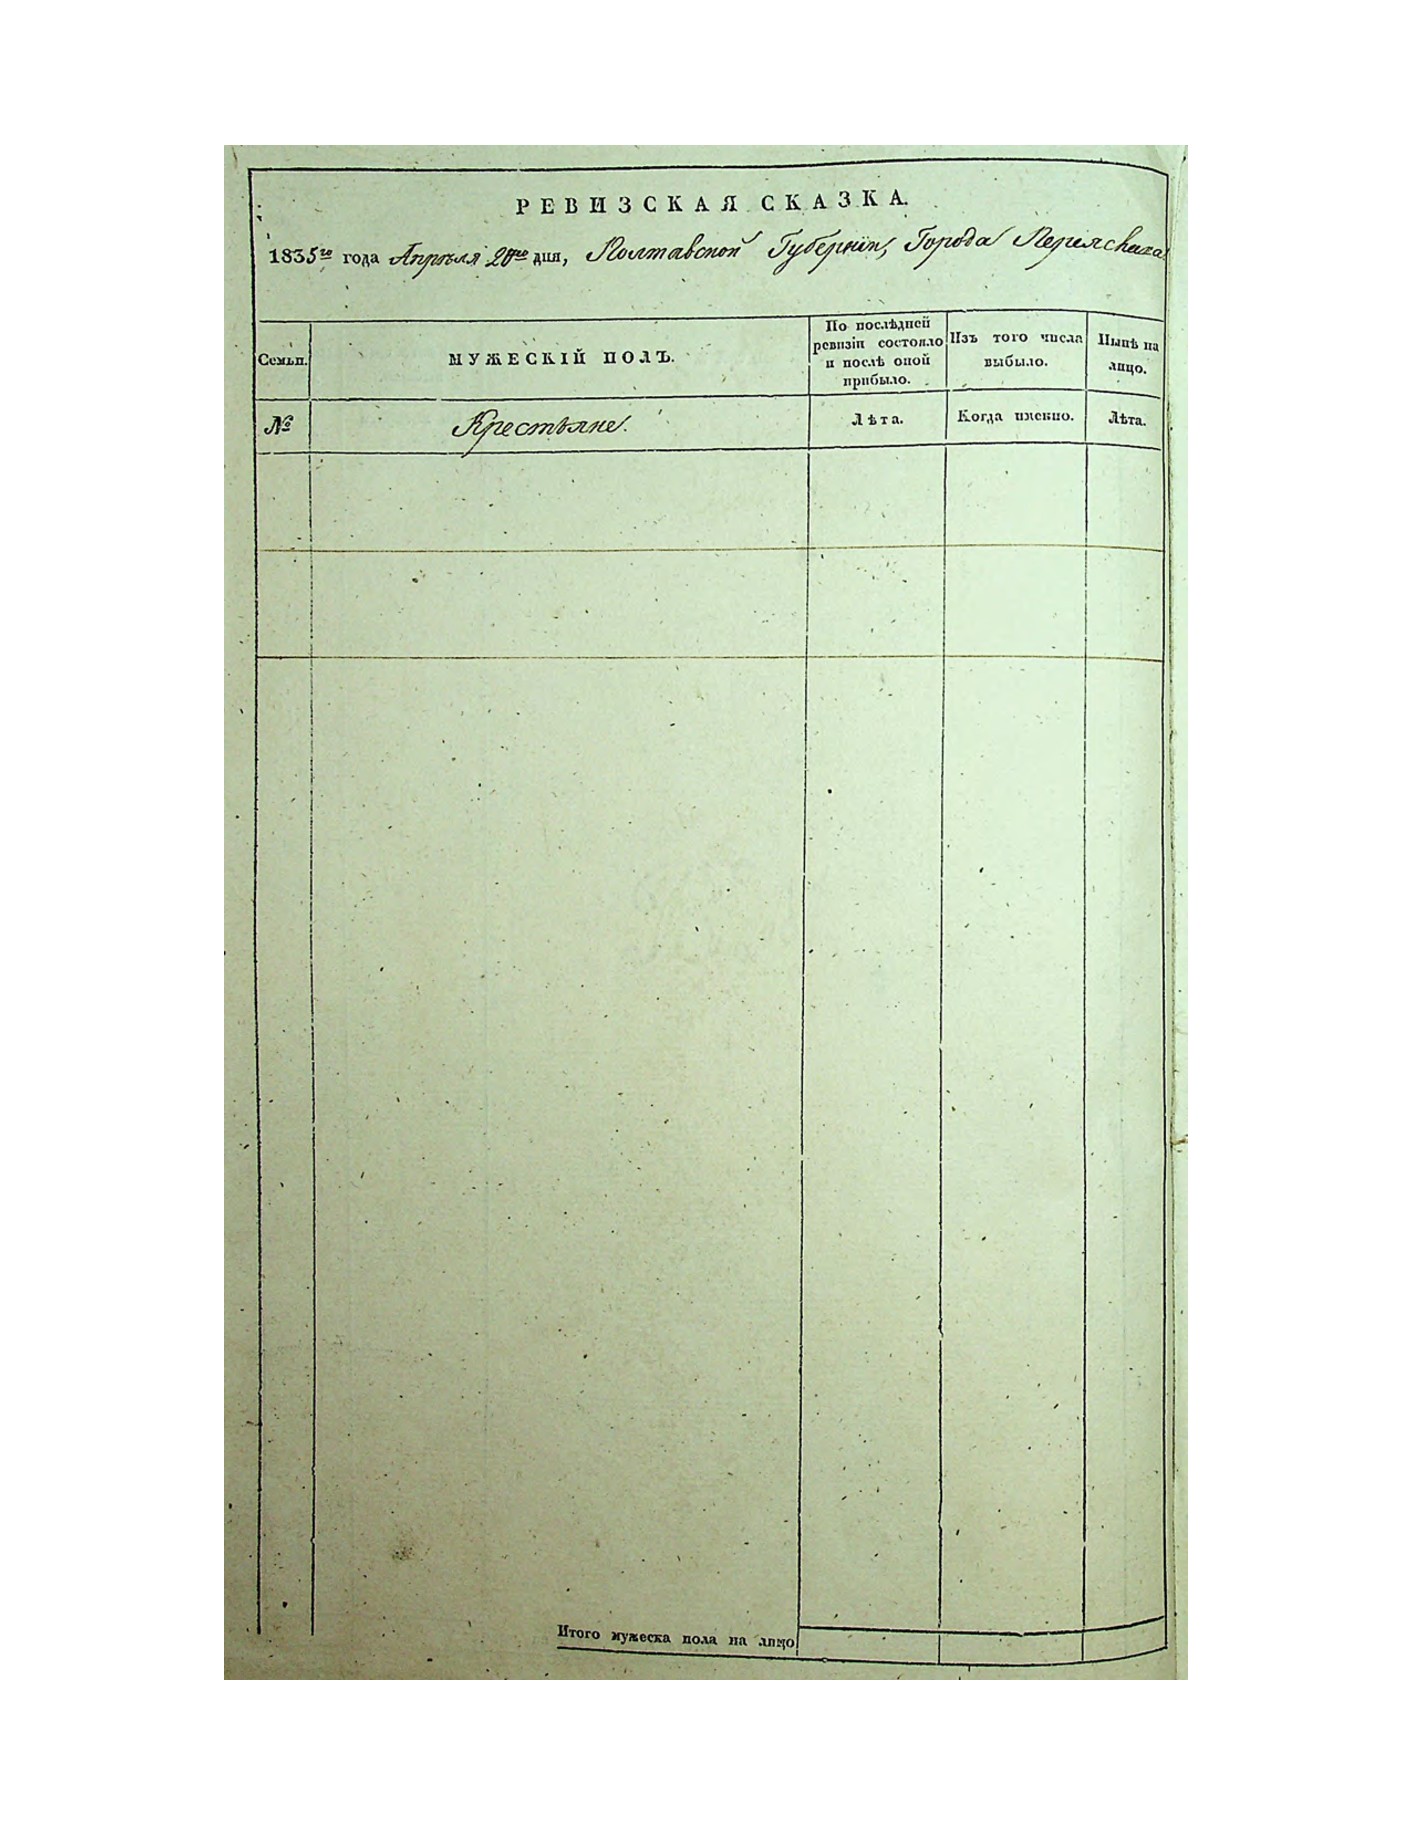 РЕВИЗСКАЯ СКАЗКА.
1835го года Апреля 20го дня, Полтавской Губернии, Города Переяслава
Семьи.
МУЖЕСКІЙ ПОЛЪ.
По послѣдней
ревизіи состояло
и послѣ оной
прибыло.
Изъ того числа
выбыло.
Нынѣ на
лицо.
№
Крестьяне.
Лѣта.
Когда именно.
Лѣта.
Итого мужеска пола на лицо